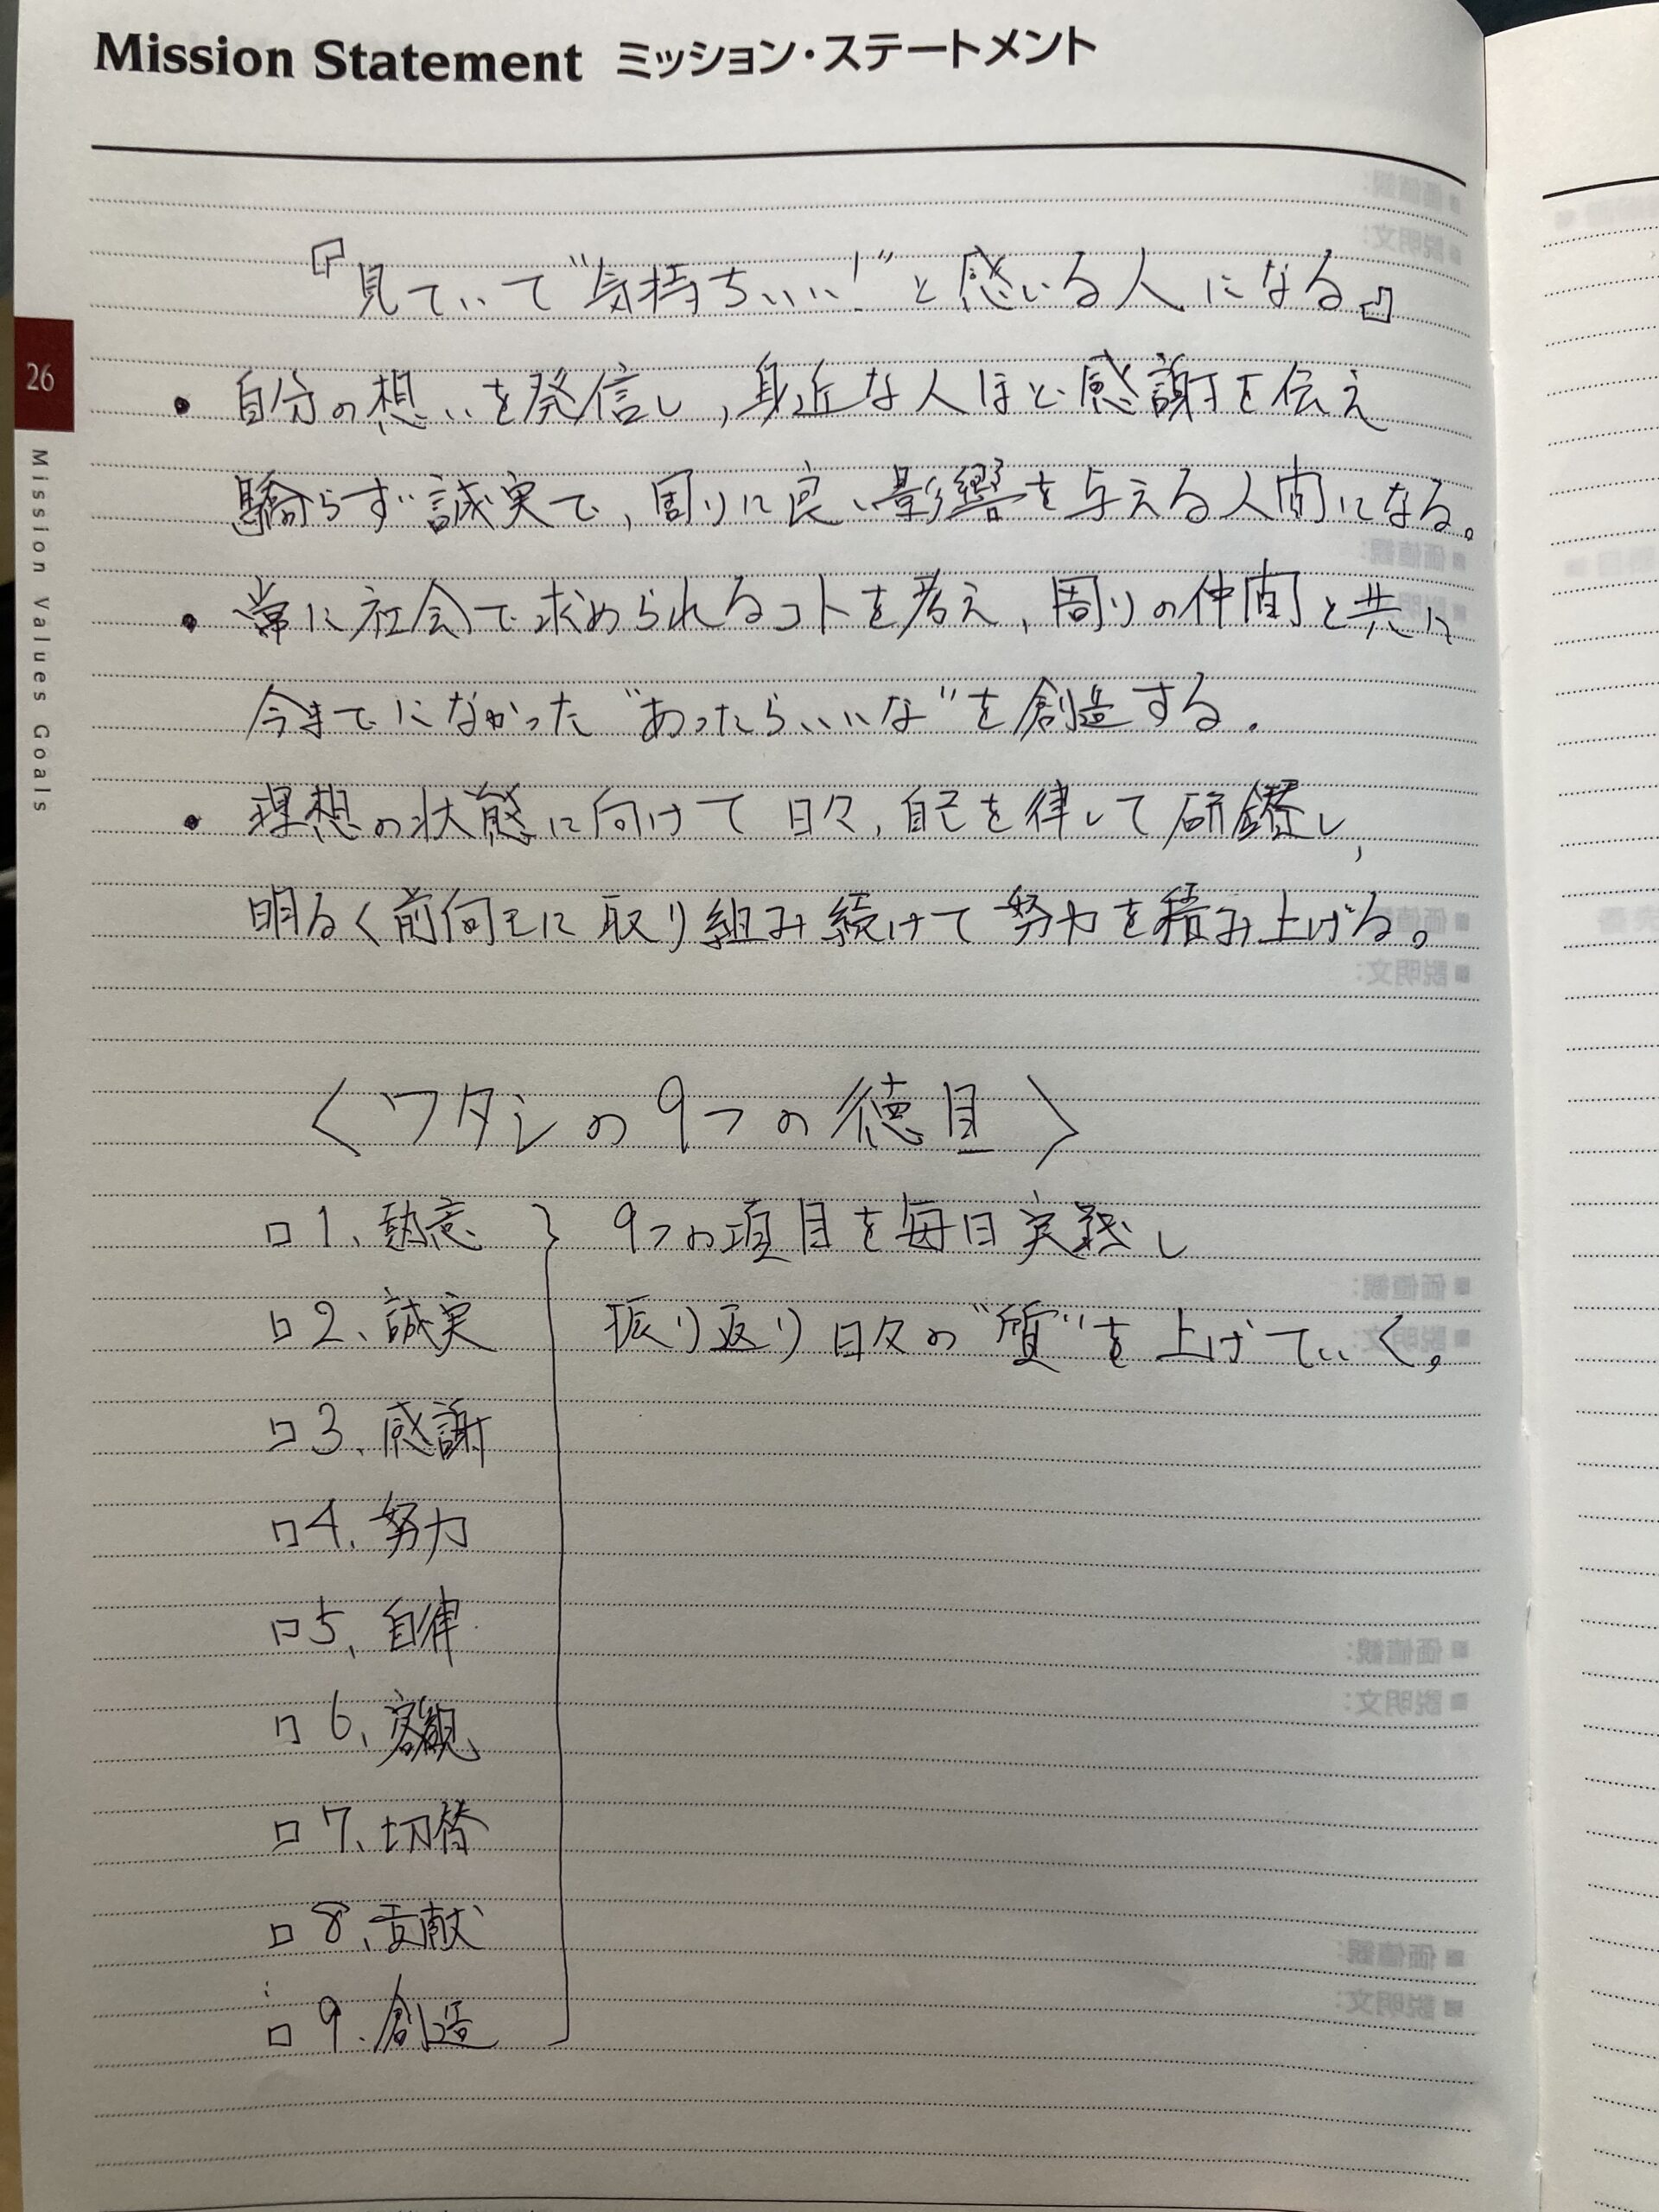 Mission Statement ミッション・ステートメント
『見ていて"気持ちいい!"と感じる人になる』
• 自分の想いを発信し,身近な人ほど感謝を伝え
驕らず誠実で,周りに良い影響を与える人間になる。
• 常に社会で求められるコトを考え,周りの仲間と共に
今までになかった"あったらいいな"を創造する.
• 理想の状態に向けて日々,自己を律して研鑽し,
明るく前向きに取り組み続けて努力を積み上げる。
〈ワタシの9つの徳目〉
□1、熱意 } 9つの項目を毎日実践し
□2、誠実 振り返り日々の"質"を上げていく。
□3、感謝
□4、努力
□5、自律
□6、客観
□7、切替
□8、貢献
□9、創造
26
Mission Values Goals
価値観:
説明文:
価値観:
説明文:
価値観:
説明文:
価値観:
説明文:
価値観:
説明文:
価値観:
説明文: